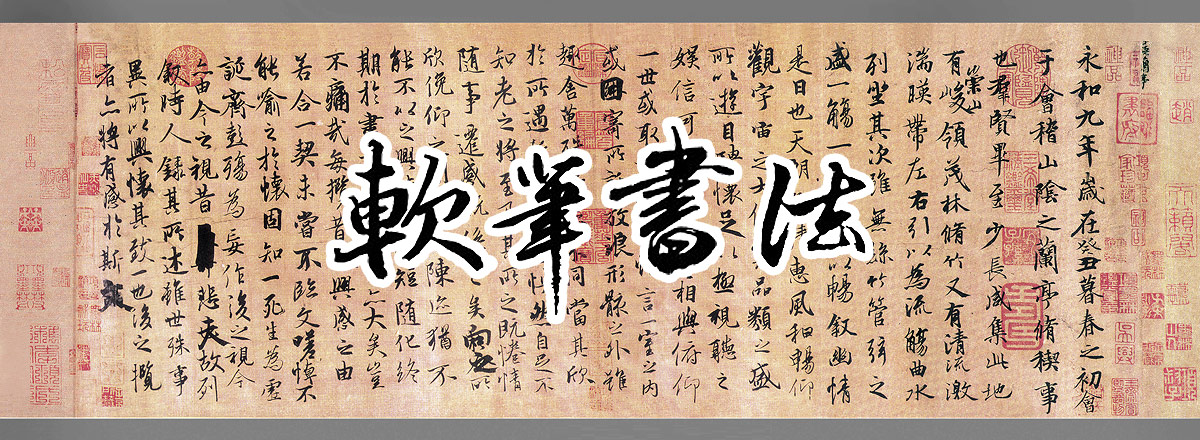 軟筆書法
永和九年歲在癸丑暮春之初會
于會稽山陰之蘭亭脩稧事
也羣賢畢至少長咸集此地
有崇山峻領茂林脩竹又有清流激
湍暎帶左右引以為流觴曲水
列坐其次雖無絲竹管弦之
盛一觴一以暢叙幽情
是日也天朗惠風和暢仰
觀宇宙之大品類之盛
所以遊目騁懷足以極視聽之
娛信可相與俯仰
一世或取言一室之內
或因寄所放浪形骸之外雖
趣舍萬殊不同當其欣
於所遇怏然自足不
知老之將至及其所之既惓情
隨事遷感矣向之所
欣俛仰之陳迹猶不
能不以之興短隨化終
期於大矣豈
不痛哉每攬興感之由
若合一契未嘗不臨文嗟悼不
能喻之於懷固知一死生為虛
誕齊彭殤為妄作後之視今
亦由今之視昔悲夫故列
叙時人錄其所述雖世殊事
異所以興懷其致一也後之攬
者亦將有感於斯文